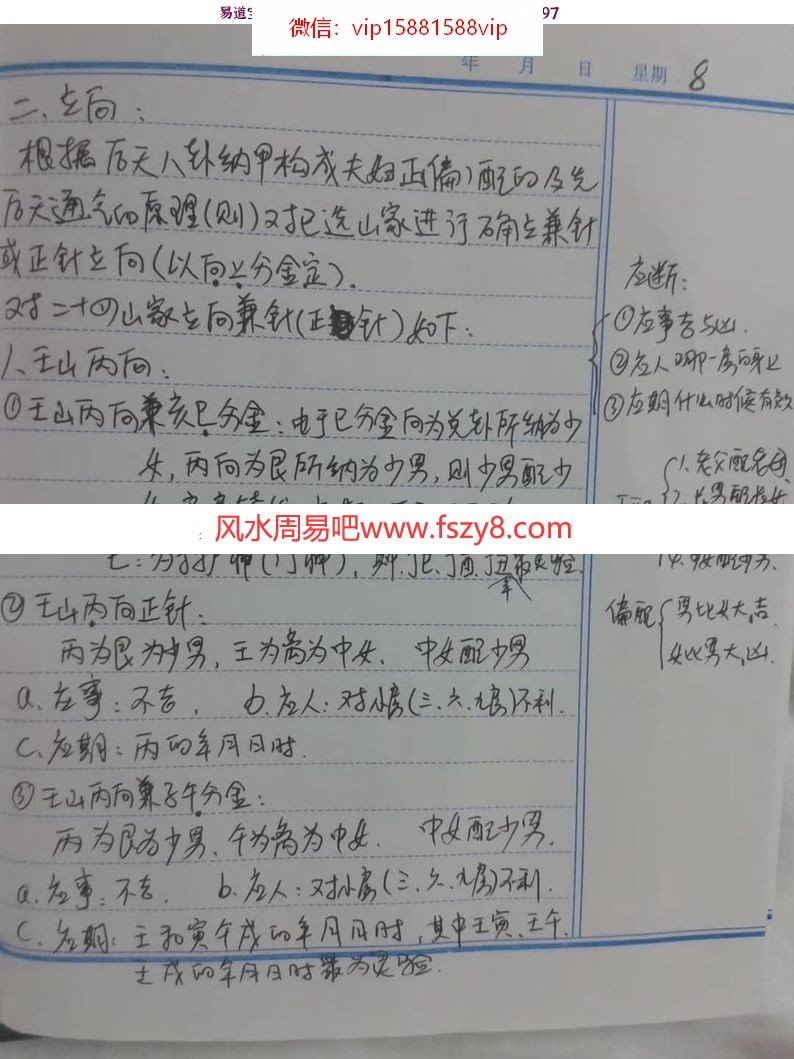 易道宝
97
微信：vip15881588vip
年 月 日 星期 8
二、立向：
根据后天八卦纳甲构成夫妇正(偏)配的及先
后天通气的原理(则)对已选山家进行确立兼针
或正针立向(以向上分金定)。
对二十四山家立向兼针(正针)如下：
1、壬山丙向：
①壬山丙向兼亥巳分金：由于巳分金向为兑卦所纳为少
女，丙向为艮所纳为少男，则少男配少
风水周易吧www.fszy8.com
②壬山丙向正针：
丙为艮为少男，壬为离为中女、中女配少男
a、应事：不吉． b、应人：对小房(三、六、九房)不利．
c、应期：丙的年月日时．
③壬山丙向兼子午分金：
丙为艮为少男、午为离为中女． 中女配少男．
a、应事：不吉． b、应人：对小房(三、六、九房)不利．
c、应期：壬和寅午戌的年月日时，其中壬寅、壬午、
壬戌的年月日时最为灵验．
应断：
①应事吉与凶．
②应人哪一房的身上
③应期什么时候有效
1、老父配老母
偏配 男比女大，吉．
女比男大，凶．